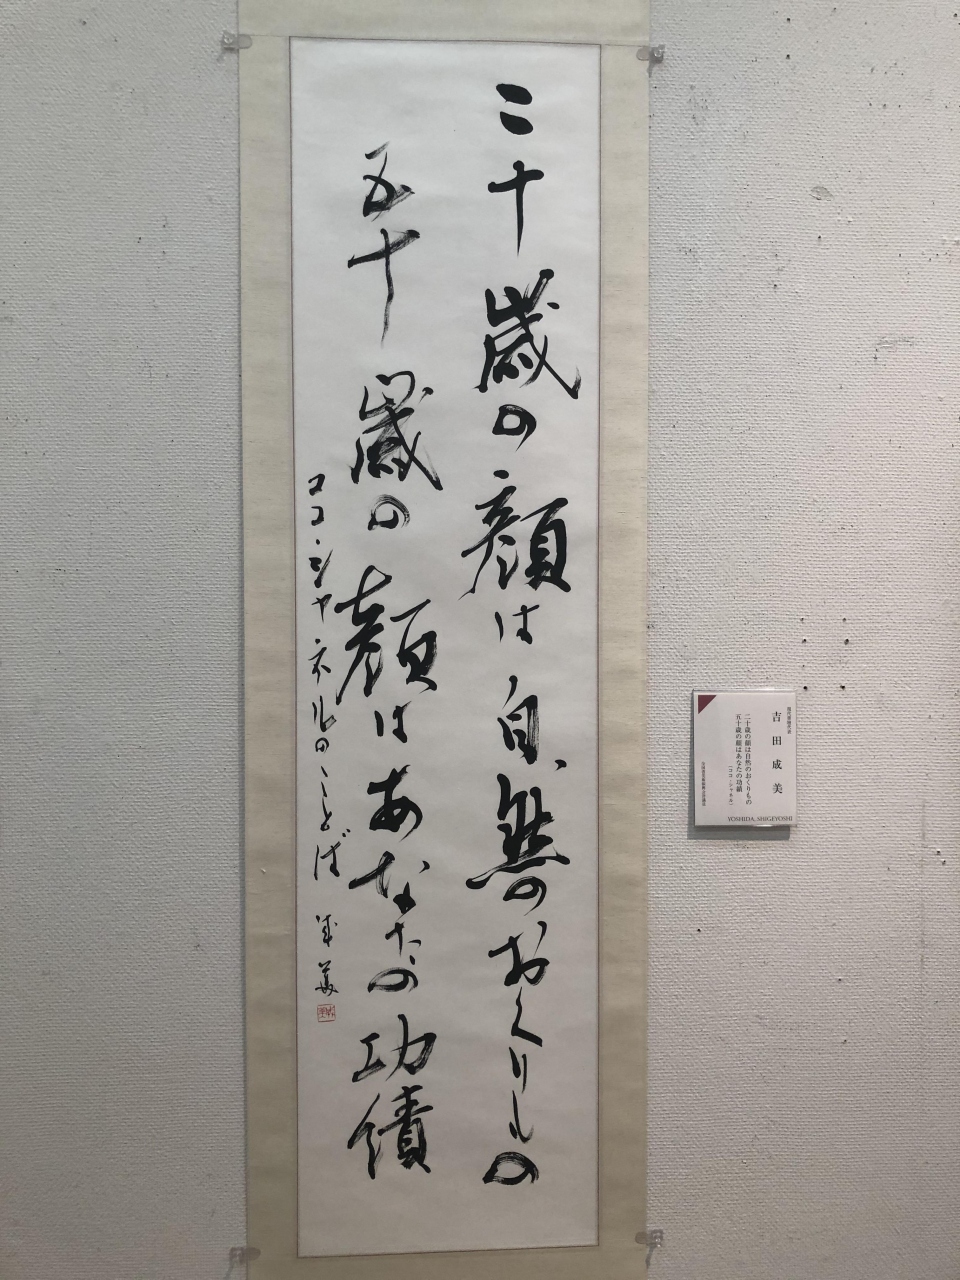 二十歳の顔は自然のおくりもの
五十歳の顔はあなたの功績
ココ・シャネルのことば 成美
吉田成美
二十歳の顔は自然のおくりもの
五十歳の顔はあなたの功績
(ココ・シャネル)
YOSHIDA, SHIGEYOSHI